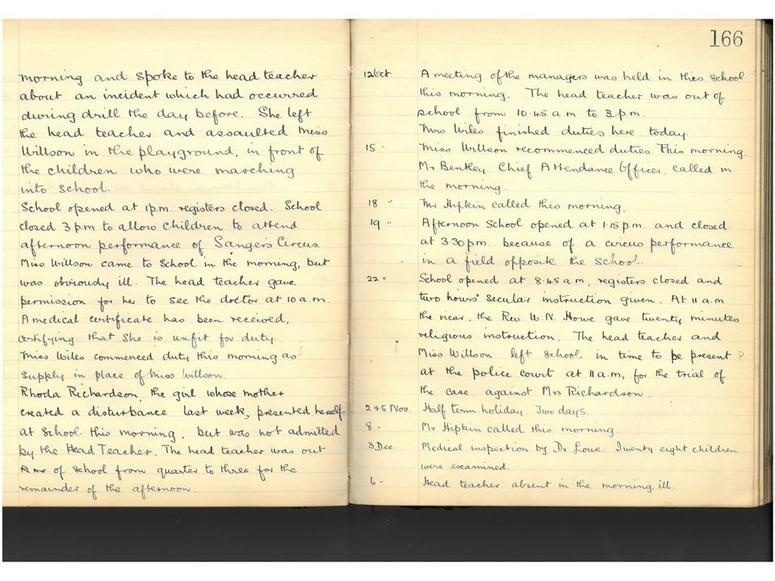 morning and spoke to the head teacher
about an incident which had occurred
during drill the day before. She left
the head teacher and assaulted Miss
Willson in the playground, in front of
the children who were marching
into school.
School opened at 1 p.m. registers closed. School
closed 3 p.m to allow children to attend
afternoon performance of Sangers Circus
Miss Willson came to School in the morning, but
was obviously ill. The head teacher gave
permission for her to see the doctor at 10 a.m.
A medical certificate has been received,
certifying that she is unfit for duty.
Miss Wiles commenced duty this morning as
supply in place of Miss Willson.
Rhoda Richardson, the girl whose mother
created a disturbance last week, presented herself
at School this morning, but was not admitted
by the Head Teacher. The head teacher was out
of school from quarter to three for the
remainder of the afternoon.
166
12 Oct A meeting of the managers was held in this School
this morning. The head teacher was out of
school from 10.45 a.m to 3 p.m.
Miss Wiles finished duties here today.
15 " Miss Willson recommenced duties this morning.
Mr Bentley, Chief Attendance Officer, called in
the morning.
18 " Mr Hipkin called this morning.
19 " Afternoon School opened at 1.15 p.m. and closed
at 3.30 p.m. because of a circus performance
in a field opposite the School.
22 " School opened at 8.45 a.m, registers closed and
two hours' secular instruction given. At 11 a.m
the vicar, the Rev. W. N. Howe gave twenty minutes
religious instruction. The head teacher and
Miss Willson left School, in time to be present
at the police court at 11 a.m, for the trial of
the case against Mrs Richardson.
2 & 5 Nov. Half term holiday. Two days.
8 " Mr Hipkin called this morning
3 Dec Medical inspection by Dr Lowe. Twenty eight children
were examined.
6 " Head teacher absent in the morning, ill.